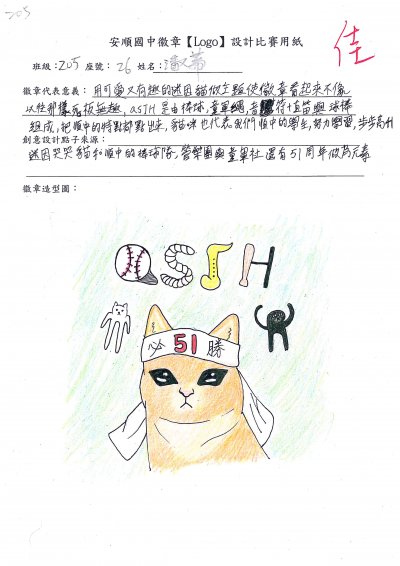 205
佳
安順國中徽章【Logo】設計比賽用紙
班級：205 座號：26 姓名：潘
徽章代表意義：用可愛又有趣的迷因貓做主題使徽章看起來不像
以往那樣死板無趣，ASJH是由棒球，童軍繩，音符+直笛與球棒
組成，把順中的特點都點出來，貓咪也代表我們順中的學生，努力學習，步步高升
創意設計點子來源：
迷因哭哭貓和順中的棒球隊，管樂團與童軍社還有51周年做為元素
徽章造型圖：
QSJH
必51勝